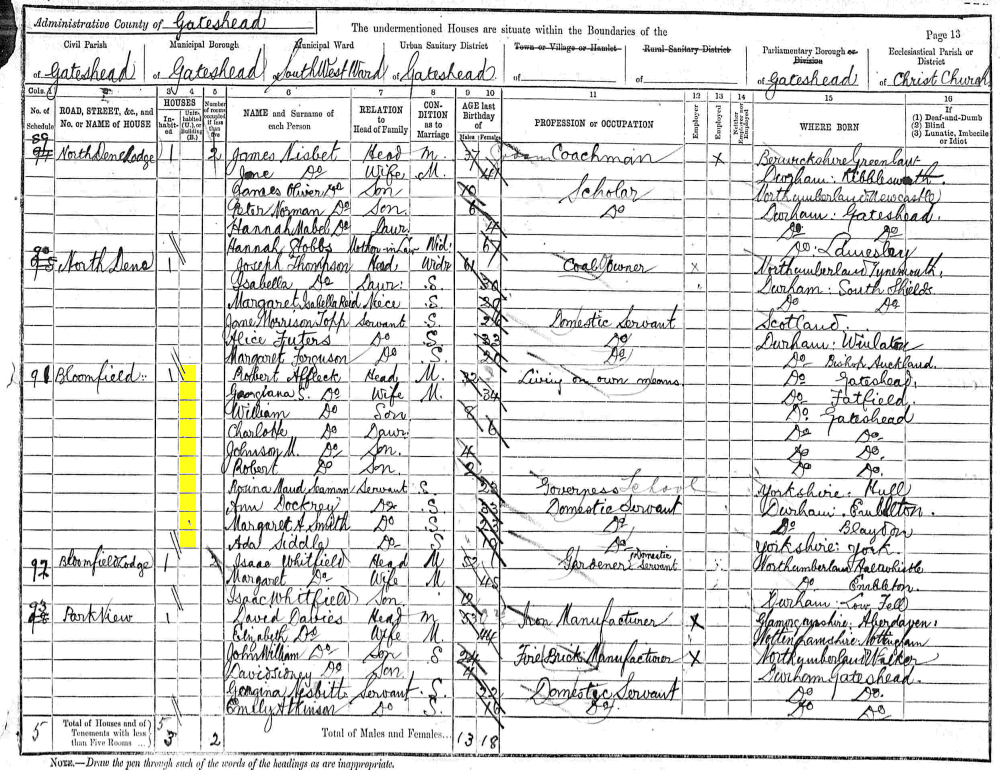 Administrative County of Gateshead The undermentioned Houses are situate within the Boundaries of the Page 13
Civil Parish Municipal Borough Municipal Ward Urban Sanitary District Town or Village or Hamlet Rural Sanitary District Parliamentary Borough or Division Ecclesiastical Parish or District
of Gateshead of Gateshead of South West Ward of Gateshead of of of Gateshead of Christ Church
Cols. 1 2 3 4 5 6 7 8 9 10 11 12 13 14 15 16
No. of Schedule ROAD, STREET, &c., and No. or NAME of HOUSE HOUSES Inhabited Uninhabited (U.), or Building (B.) Number of rooms occupied if less than five NAME and Surname of each Person RELATION to Head of Family CONDITION as to Marriage AGE last Birthday of Males Females PROFESSION or OCCUPATION Employer Employed Neither Employer nor Employed WHERE BORN If (1) Deaf-and-Dumb (2) Blind (3) Lunatic, Imbecile or Idiot
North Dene Lodge 1 2 James Nisbet Head M. 37 Coachman X Berwickshire Greenlaw
Jane Do Wife M. 41 Durham: Kibblesworth
James Oliver Do Son 10 Scholar Northumberland Newcastle
Peter Norman Do Son 6 Do Durham: Gateshead.
Hannah Mabel Do Dawr. 4 Do Do
Hannah Stobbs Mother-in-Law Wid: 67 Do: Lamesley
North Dene 1 Joseph Thompson Head, Widr 61 Coal Owner x Northumberland Tynemouth,
Isabella Do Dawr: S. 30 Durham: South Shields
Margaret Isabella Reid Niece S. 20 Do Do
Jane Morrison Topp Servant S. 26 Domestic Servant Scotland.
Alice Futers Do S. Do Durham: Winlaton
Margaret Ferguson Do S. 21 Do Do Bishop Auckland.
91 Bloomfield 1 Robert Affleck Head M. Living on own means. Do Gateshead,
Georgiana S. Do Wife M. 34 Do Fatfield.
William Do Son 8 Do Gateshead
Charlotte Do Dawr: 6 Do Do
Johnson M. Do Son. 4 Do Do.
Robert Do Son. 2 Do. Do.
Rosina Maud Seaman Servant S. 22 Governess School Yorkshire: Hull
Ann Dockrey Do S. Domestic Servant Durham: Embleton.
Margaret A. Smith Do S. 22 Do Do Blaydon
Ada Siddle Do S. Do Yorkshire: York.
92 Bloomfield Lodge 1 Isaac Whitfield Head M 52 Gardener Domestic Servant Northumberland Haltwhistle
Margaret Do Wife M 45 Do Embleton.
Isaac Whitfield Son 12 Durham: Low Fell
93 Park View 1 David Davies Head M 53 Iron Manufacturer X Glamorganshire: Aberdaven.
Elizabeth Do Wife M. 44 Nottinghamshire: Nottingham
John William Do Son S 24 Fire Brick Manufacturer X Northumberland Walker
David Sidney Do Son. 4 Durham Gateshead.
Georgina Nesbitt Servant S. 22 Domestic Servant Do Do.
Emily Atkinson Do S. Do. Do Do
5 Total of Houses and of Tenements with less than Five Rooms ... 5 3 2 Total of Males and Females... 13 18
NOTE.—Draw the pen through such of the words of the headings as are inappropriate.